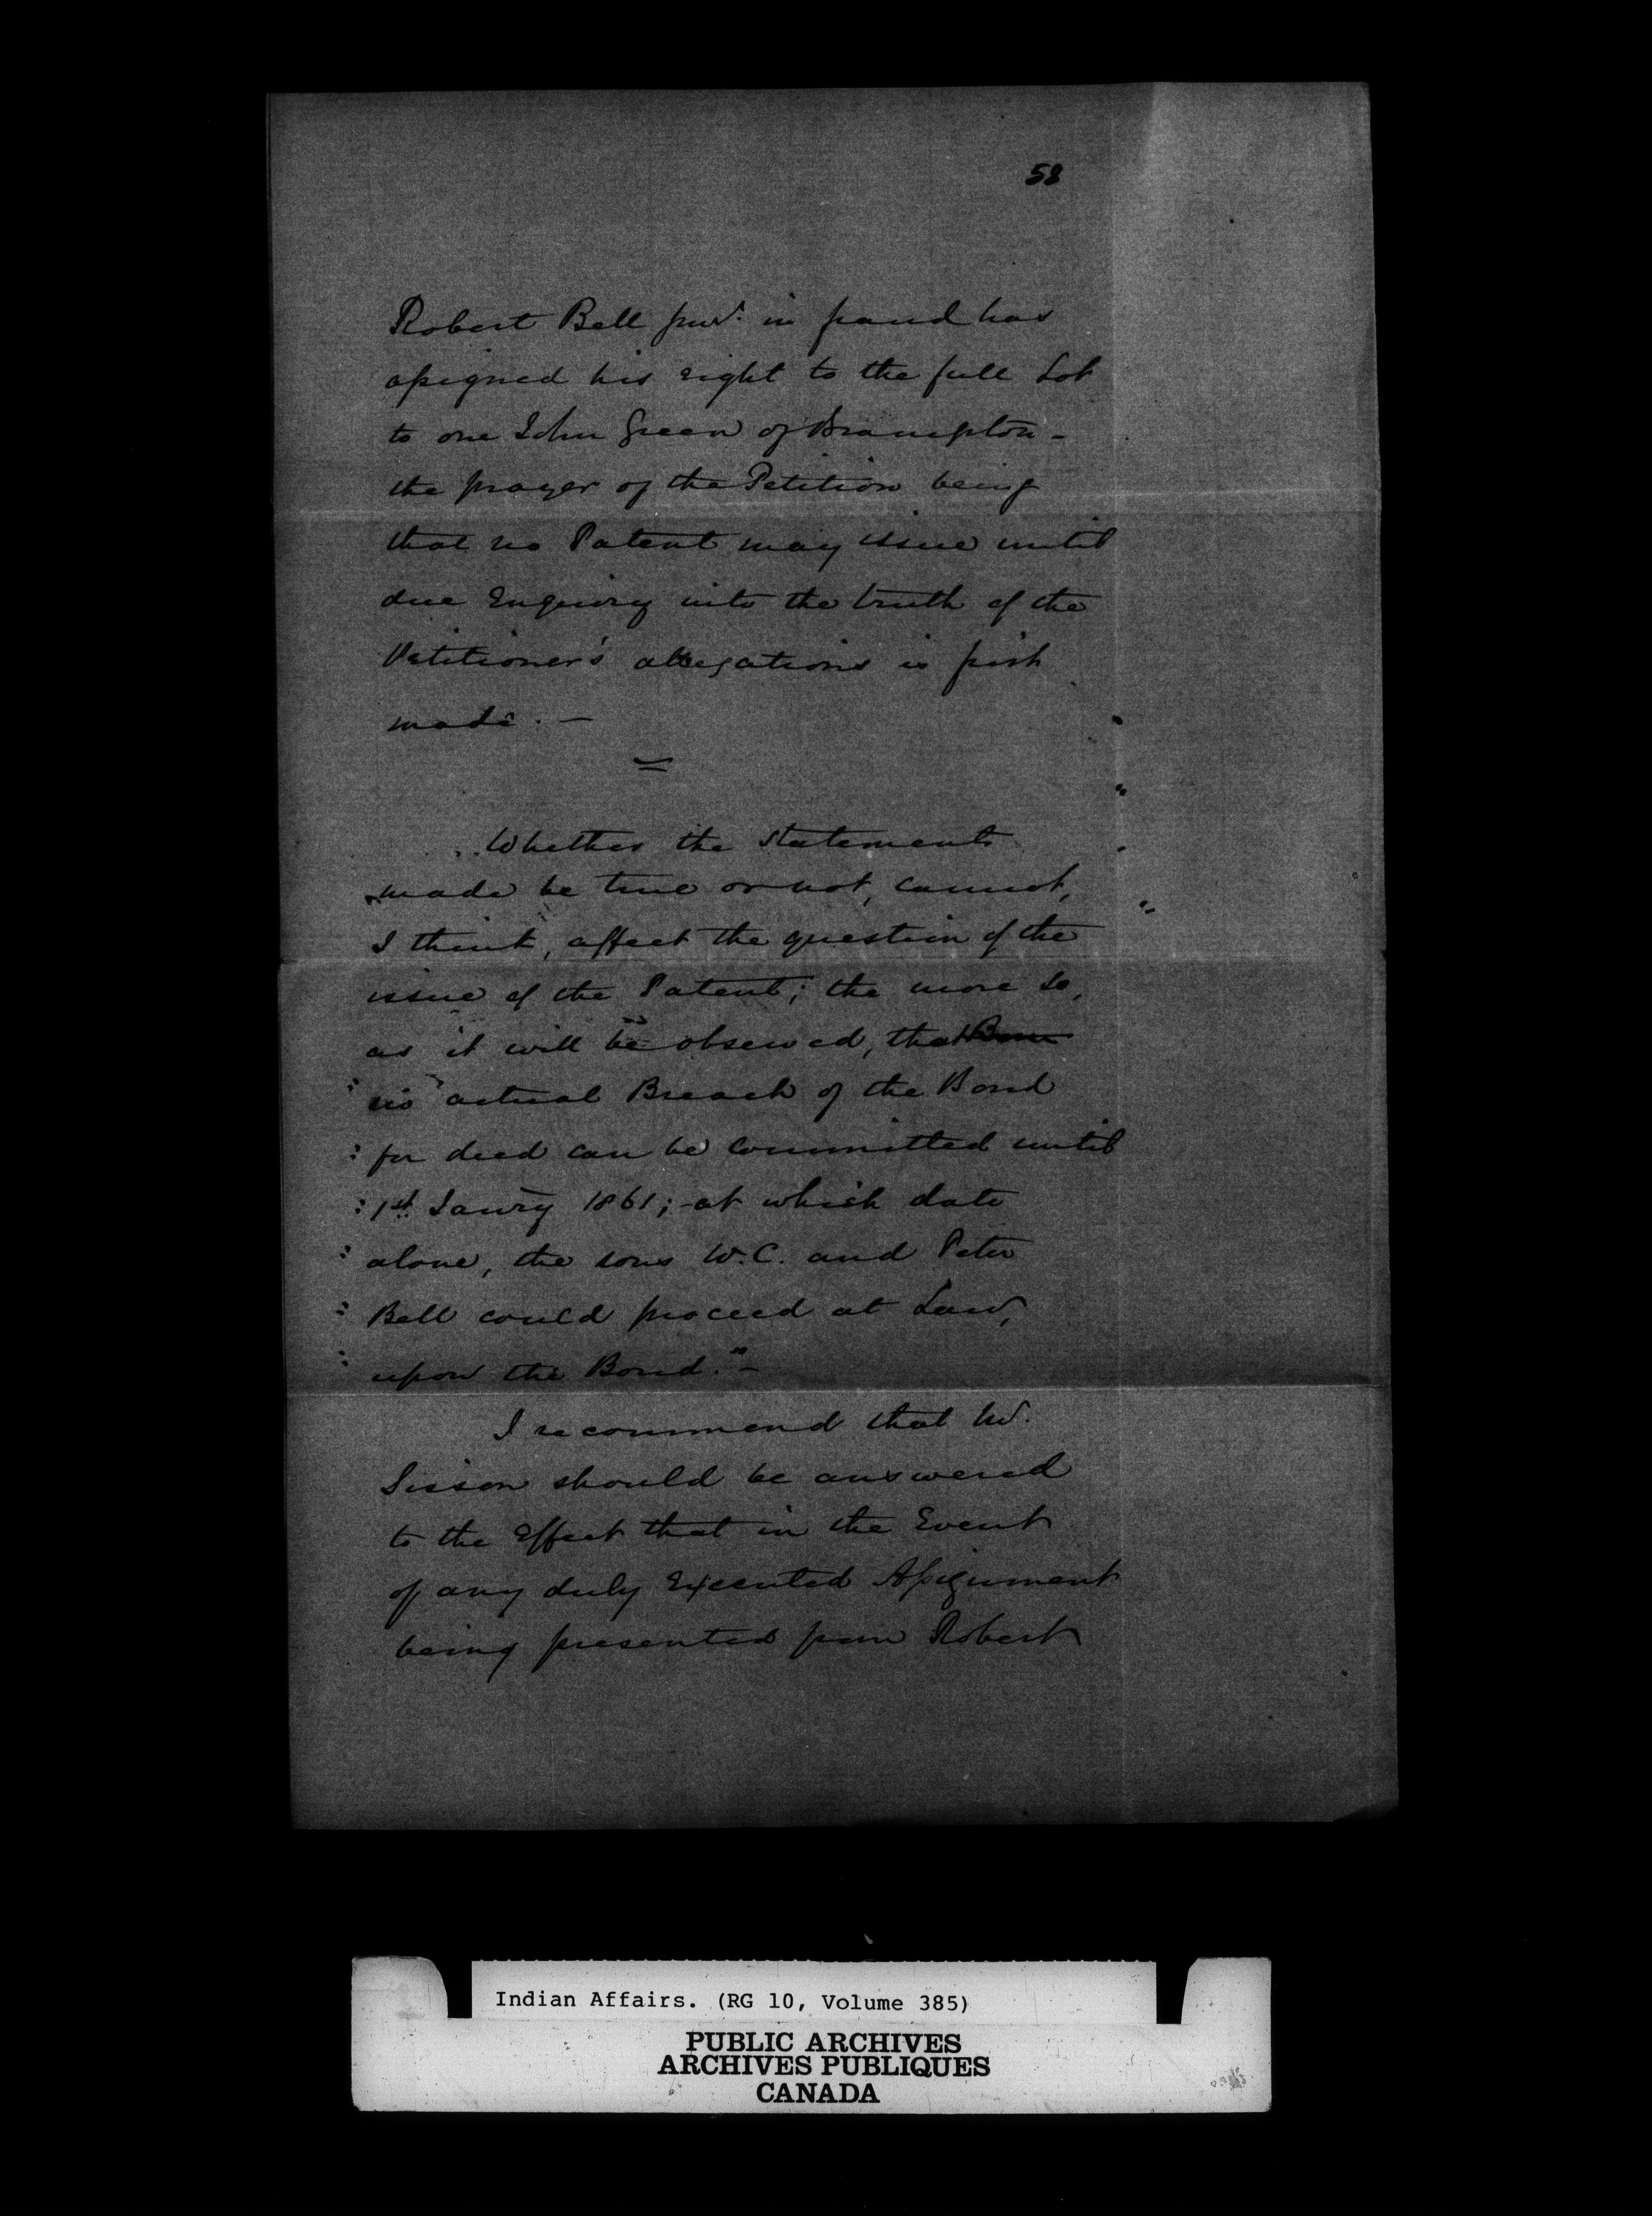 58
Robert Bell junr. in fraud has
assigned his right to the full Lot
to one John Green of Brampton -
the prayer of the Petition being
that no Patent may issue until
due Enquiry into the truth of the
Petitioner's allegations is first
made. —
Whether the statements
made be true or not, cannot,
I think, affect the question of the
issue of the Patent; the more so,
as it will be observed, that
" no actual Breach of the Bond
: for deed can be committed until
: 1st. Janry 1861; - at which date
: alone, the sons W.C. and Peter
: Bell could proceed at Law,
: upon the Bond." -
I recommend that Mr.
Sisson should be answered
to the Effect that in the Event
of any duly Executed Assignment
being presented from Robert
Indian Affairs. (RG 10, Volume 385)
PUBLIC ARCHIVES
ARCHIVES PUBLIQUES
CANADA